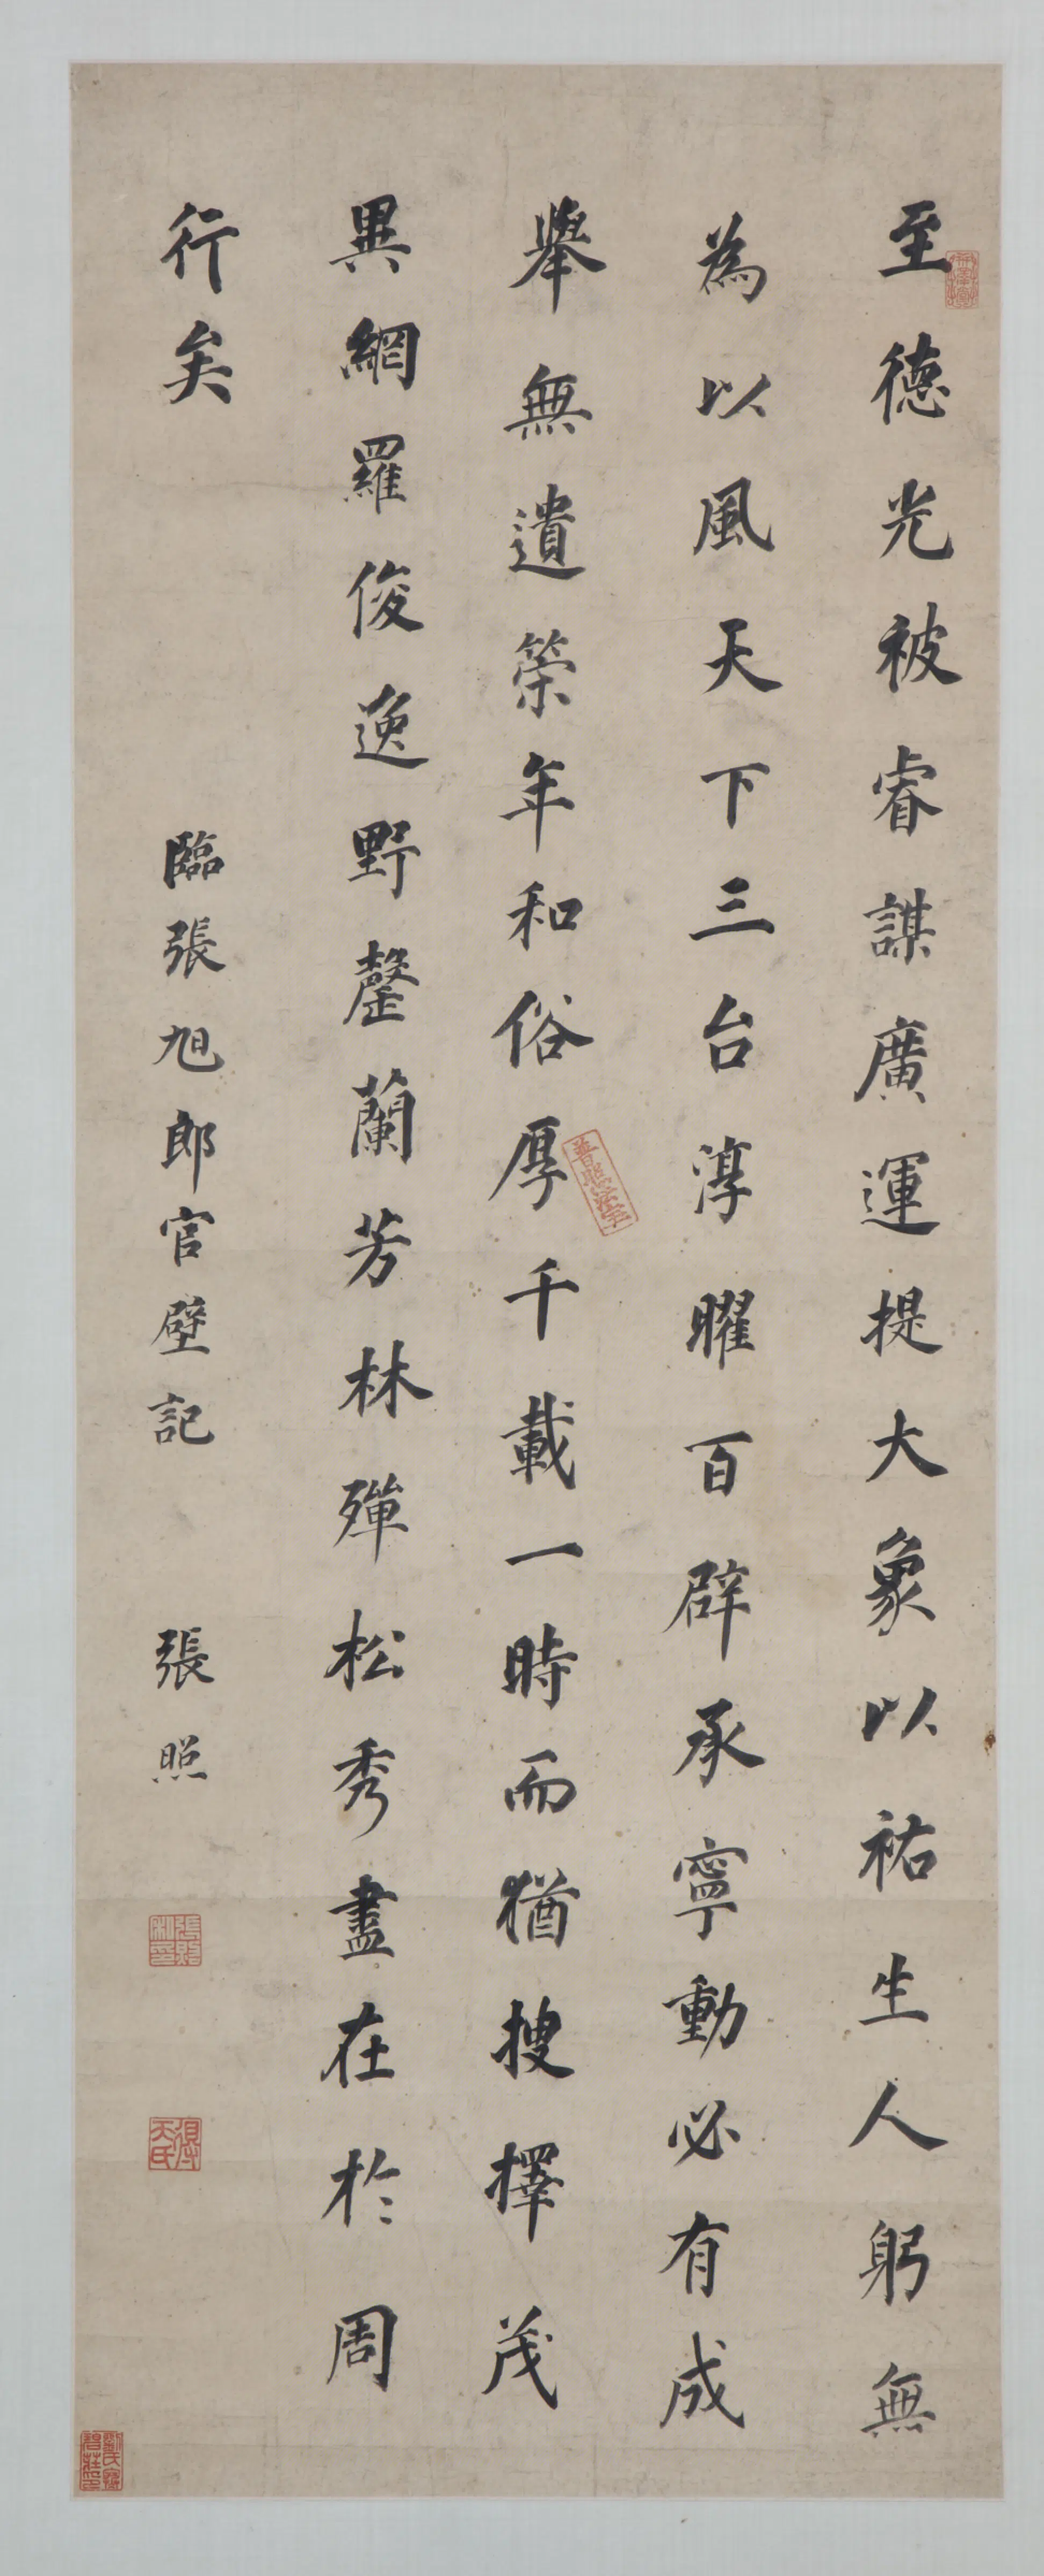 至德光被睿謀廣運提大象以祐生人躬無
為以風天下三台淳曜百辟承寧動必有成
舉無遺策年和俗厚千載一時而猶搜擇茂
異網羅俊逸野罄蘭芳林殫松秀盡在於周
行矣
臨張旭郎官壁記
張照
普照法宇
張照私印
得天氏